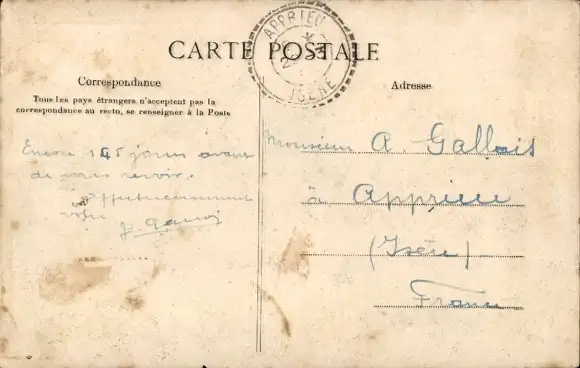 CARTE POSTALE
APPRIEU
ISÈRE
Correspondance
Tous les pays étrangers n'acceptent pas la
correspondance au recto, se renseigner à la Poste
Encore 145 jours avant
de vous revoir.
Affectueusement
votre
Adresse
Monsieur A. Gallais
à Apprieu
(Isère)
France